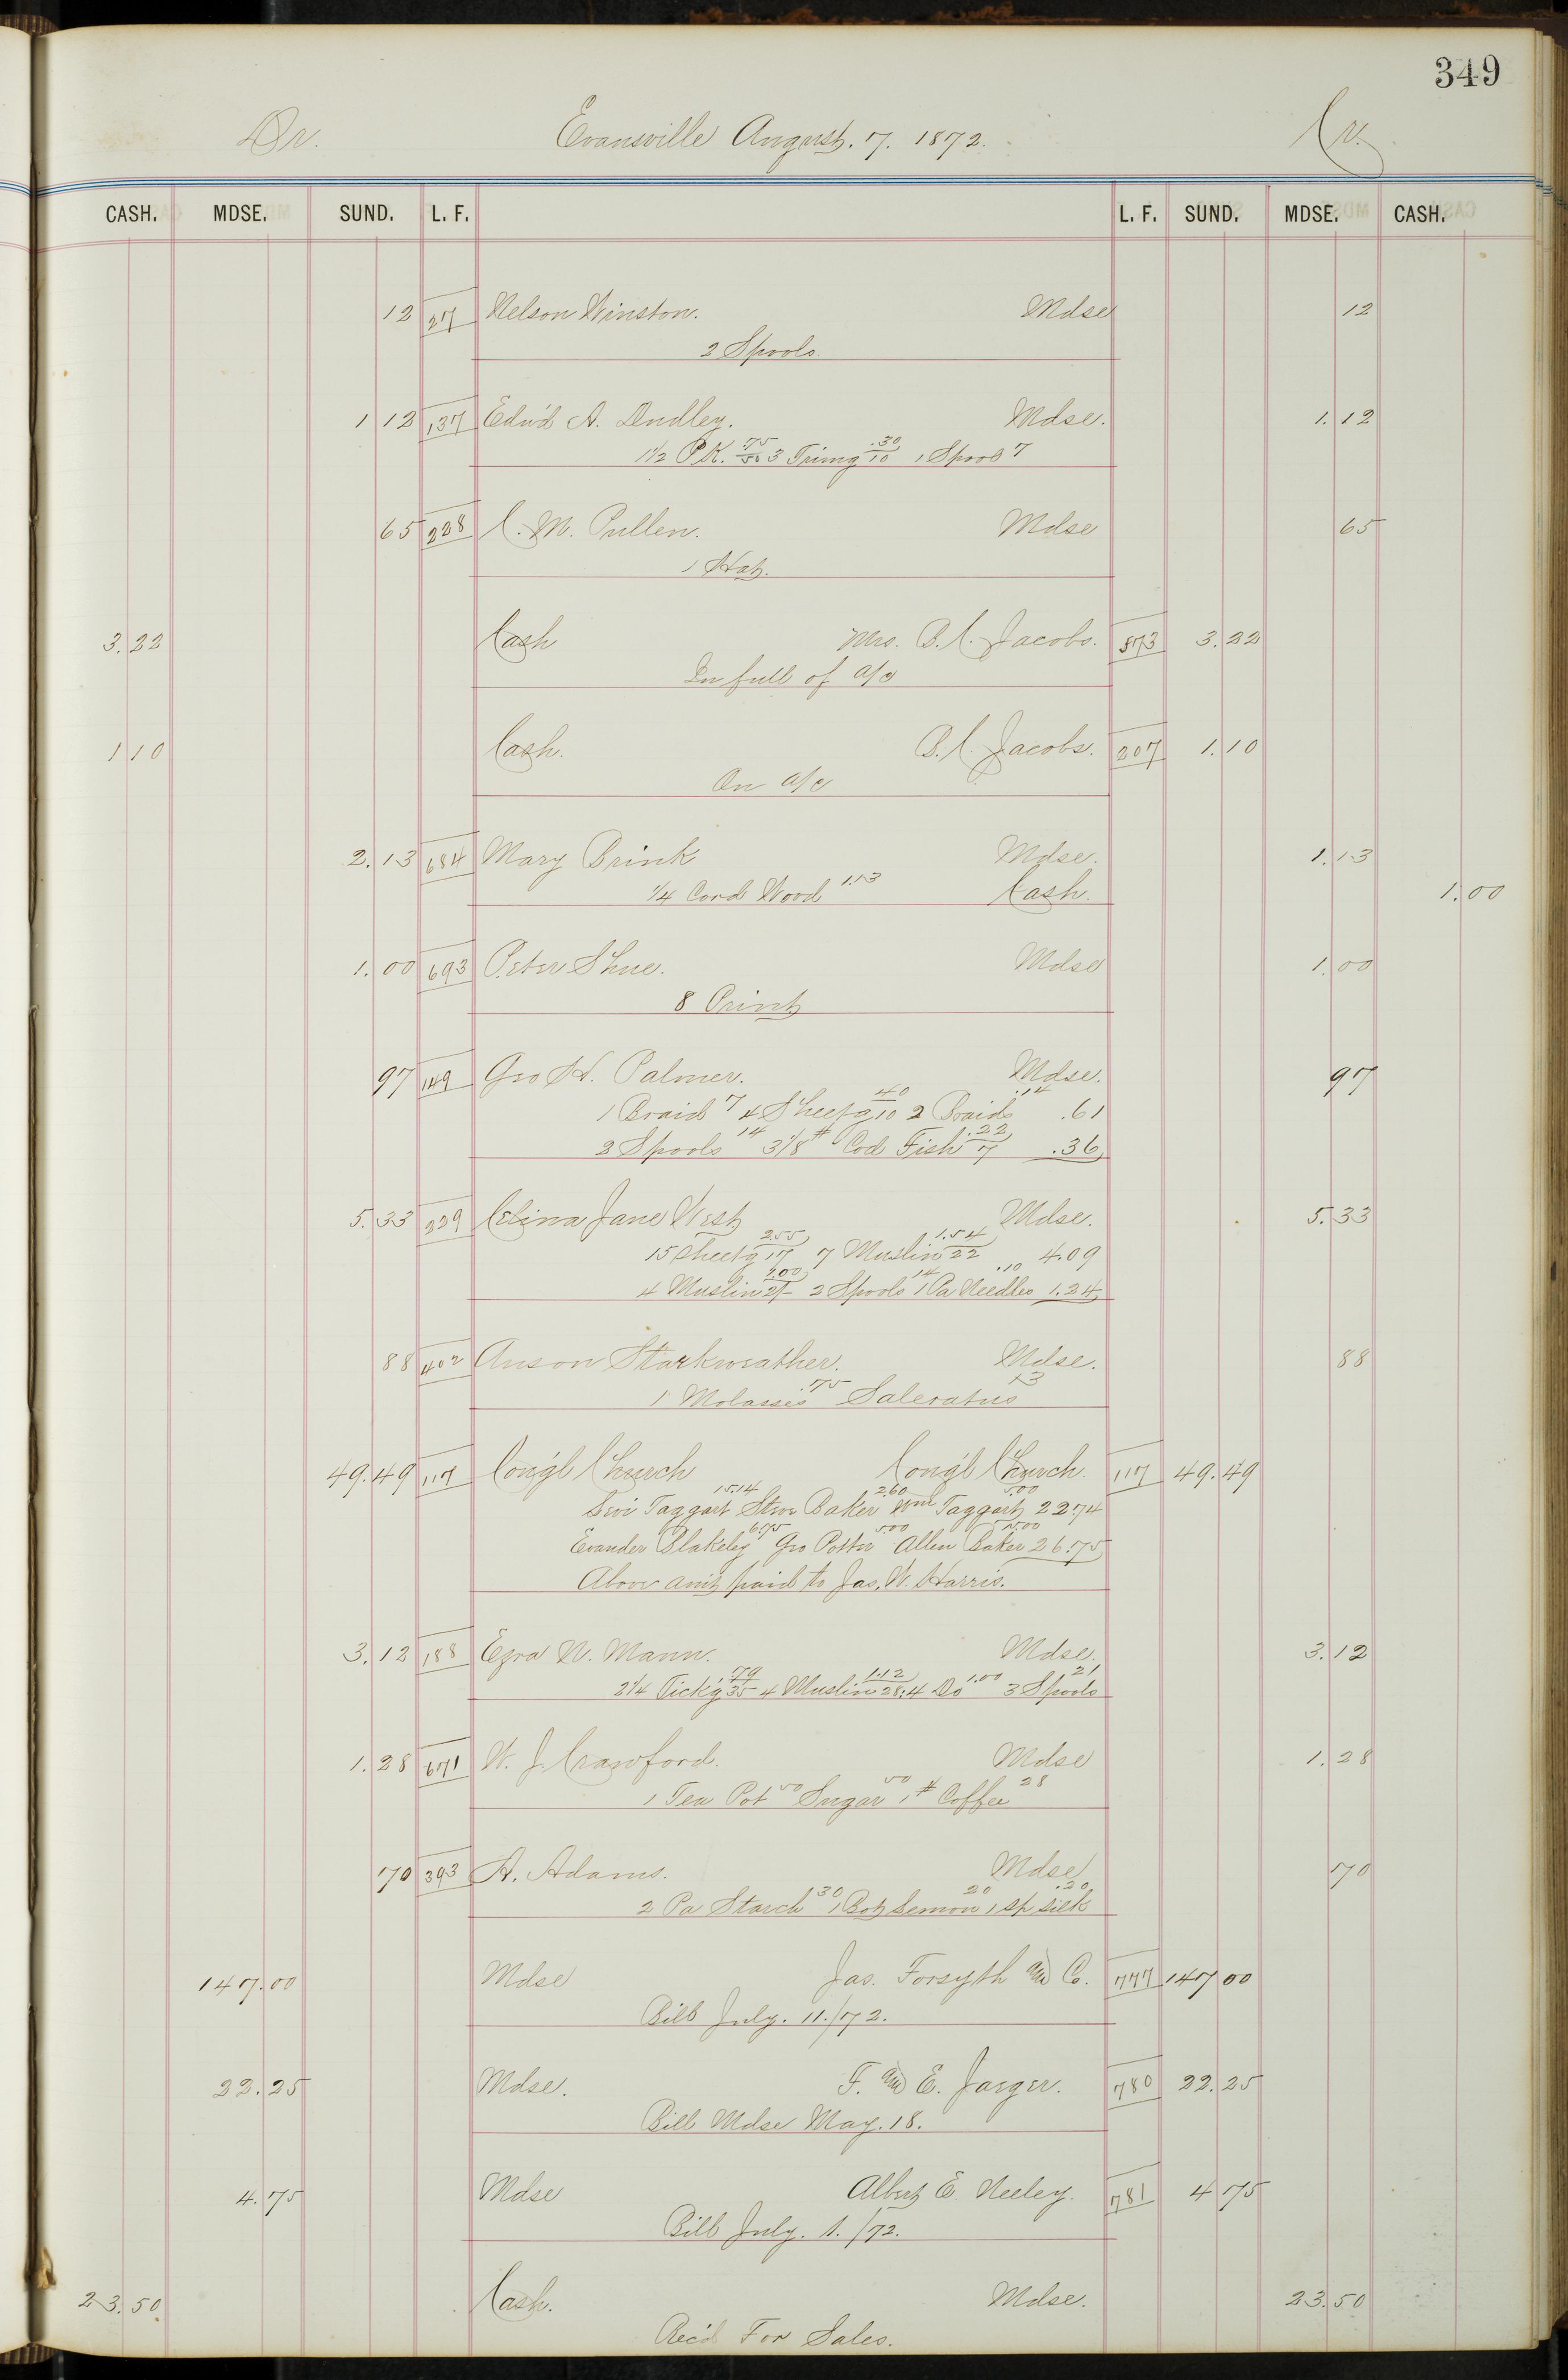 349
Dr. Evansville August. 7. 1872. Cr.
CASH. MDSE. SUND. L. F. L. F. SUND. MDSE. CASH.
12 27 Nelson Winston. Mdse 12
2 Spools.
1 12 137 Edw'd A. Dudley. Mdse. 1.12
1 1/2 P.K. .75/50 3 Trimg .30/10 1 Spool 7
65 228 C. M. Pullen. Mdse 65
1 Hat.
3.22 Cash Mrs. B. C. Jacobs. 573 3.22
In full of a/c
1 10 Cash. B. C. Jacobs. 207 1.10
On a/c
2.13 684 Mary Brink Mdse. 1.13
1/4 Cord Wood 1.13 Cash. 1.00
1.00 693 Peter Shue. Mdse 1.00
8 Print
97 149 Geo H. Palmer. Mdse. 97
1 Braid 7 4 Sheet'g 40/10 2 Braids .14 .61
2 Spools 14 3 1/8 # Cod Fish .22/7 .36
5.33 229 Celina Jane West Mdse. 5.33
15 Sheet'g 2.55/17 7 Muslin 1.54/22 4.09
4 Muslin 1.00/2/- 2 Spools 14 1 Pa Needles .10 1.24
88 402 Anson Starkweather. Mdse. 88
1 Molasses .75 Saleratus 13
49.49 117 Cong'l Church Cong'l Church. 117 49.49
Levi Taggart 15.14 Steve Baker 2.60 Wm Taggart 5.00 22.74
Evander Blakeley 6.75 Geo Potter 5.00 Allen Baker 15.00 26.75
Above am't paid to Jas. W. Harris.
3.12 188 Ezra N. Mann. Mdse. 3.12
2 1/4 Tick'g .79/35 4 Muslin 1.12/28 4 Do 1.00 3 Spools 21
1.28 671 W. J. Crawford. Mdse 1.28
1 Tea Pot 50 Sugar 50 1 # Coffee 28
70 393 A. Adams. Mdse 70
2 Pa Starch 30 1 Bot Lemon 20 1 sp silk .20
147.00 Mdse Jas. Forsyth and Co. 777 147 00
Bill July. 11./72.
22.25 Mdse. F. and E. Jaeger. 780 22.25
Bill Mdse May. 18.
4.75 Mdse Albert E. Neeley. 781 4 75
Bill July. 1./72.
23.50 Cash. Mdse. 23.50
Rec'd For Sales.